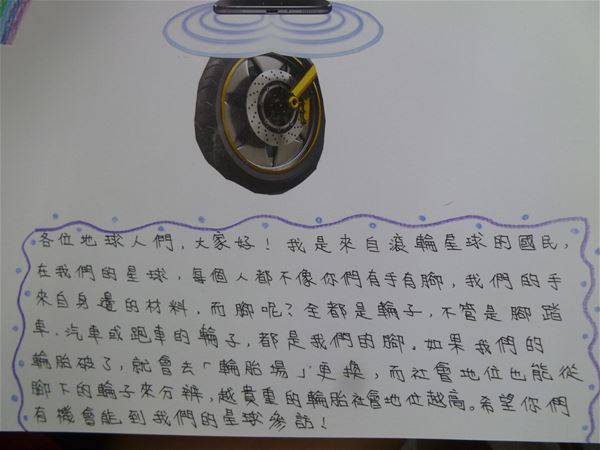 各位地球人們，大家好！我是來自滾輪星球的國民，
在我們的星球，每個人都不像你們有手有腳，我們的手
來自身邊的材料，而腳呢？全都是輪子，不管是腳踏
車．汽車或跑車的輪子，都是我們的腳。如果我們的
輪胎破了，就會去「輪胎場」更換，而社會地位也能從
腳下的輪子來分辨，越貴重的輪胎社會地位越高。希望你們
有機會能到我們的星球參訪！